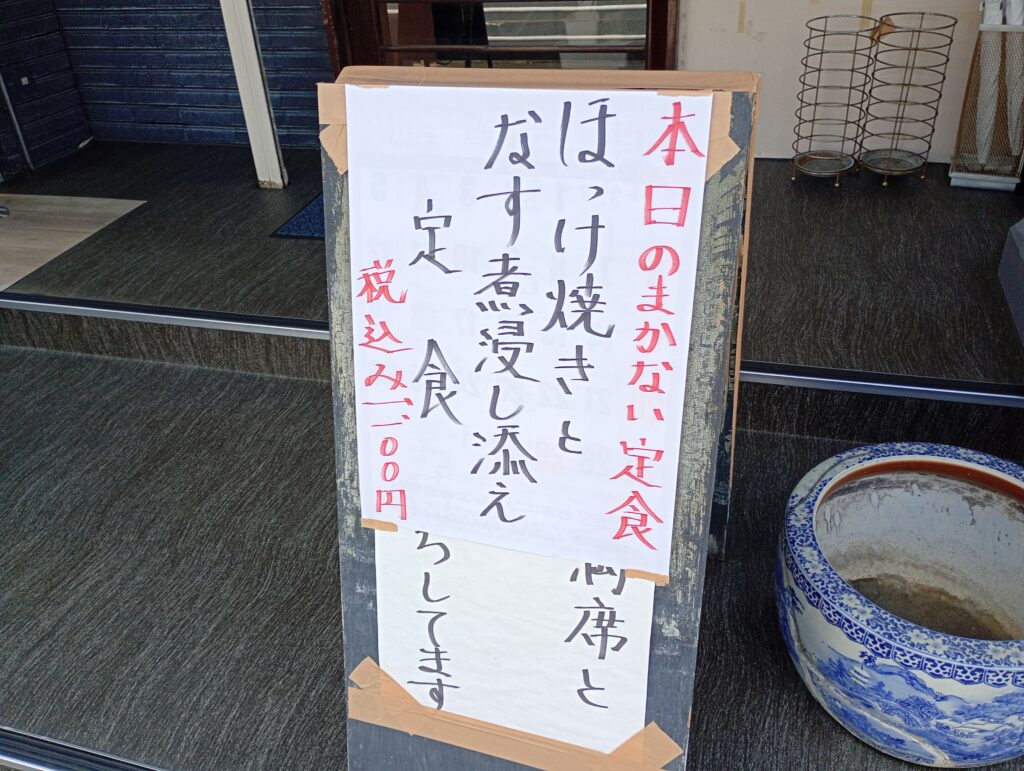 本日のまかない定食
ほっけ焼きと
なす煮浸し添え
定食
税込み一、一〇〇円
満席と
ちしてます